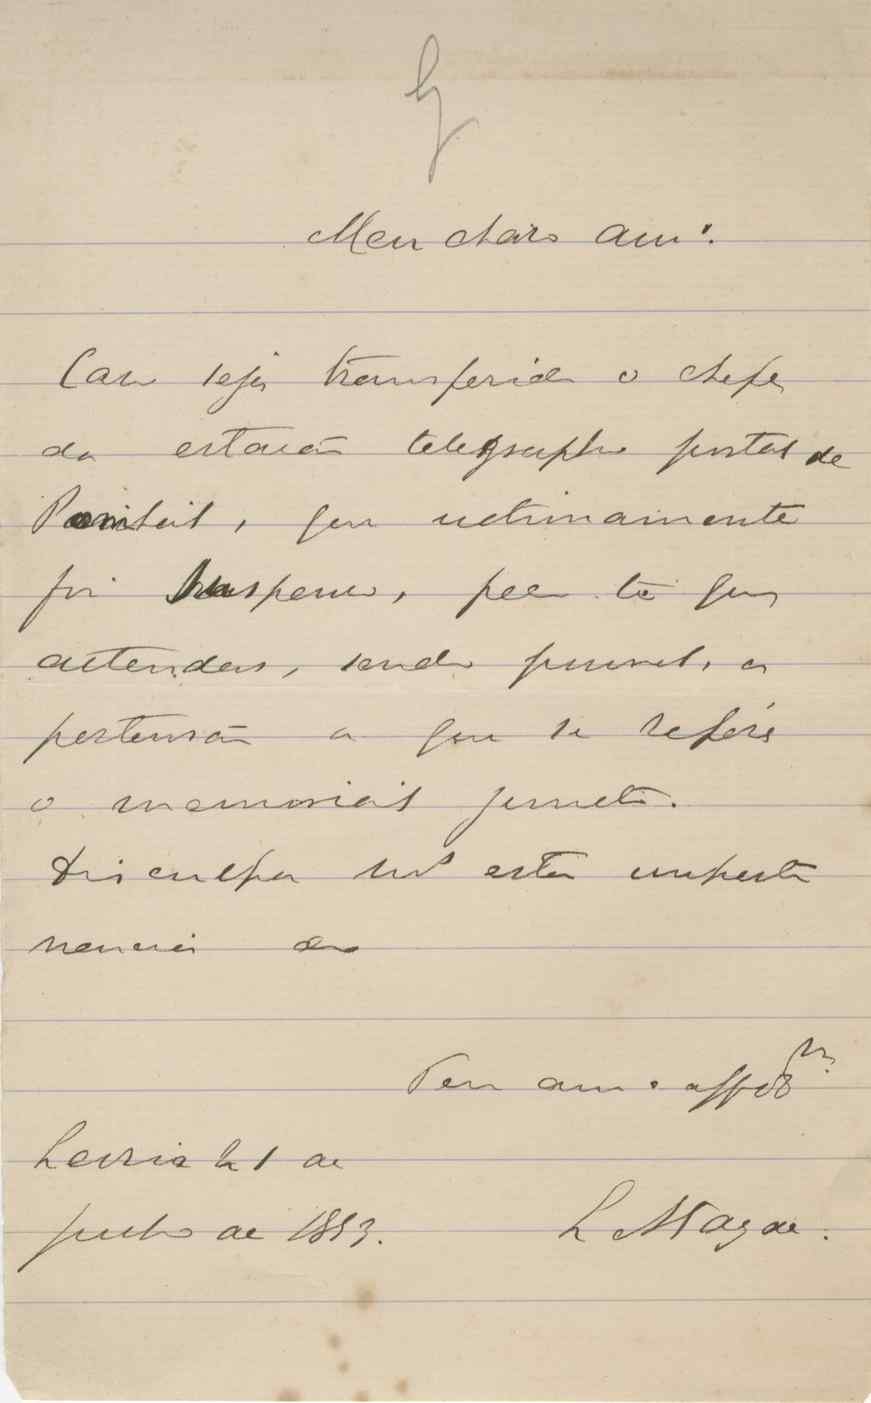 Meu charo am.º
Caso seja transferido o chefe
da estação telegrapho postal de
que ultimamente
foi suspenso, peço te que
attendas, sendo possivel, a
pertensão a que se refere
o memorial juncto.
Disculpa me esta imperti
nencia do
Teu am.º aff.do
de
Julho de 1893.
L Mag.de